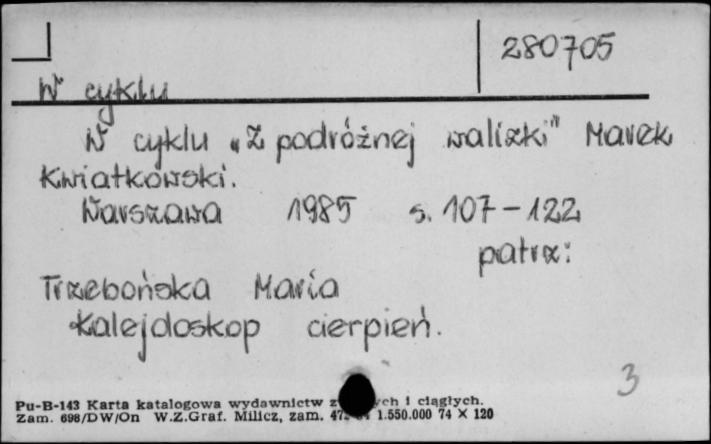 280705
W cyklu
W cyklu „Z podróżnej walizki" Marek
Kwiatkowski.
Warszawa 1985 s. 107-122
patrz:
Trzebońska Maria
Kalejdoskop cierpień.
3
Pu-B-143 Karta katalogowa wydawnictw i ciągłych.
Zam. 698/DW/On W.Z.Graf. Milicz, zam. 1.550.000 74 X 120